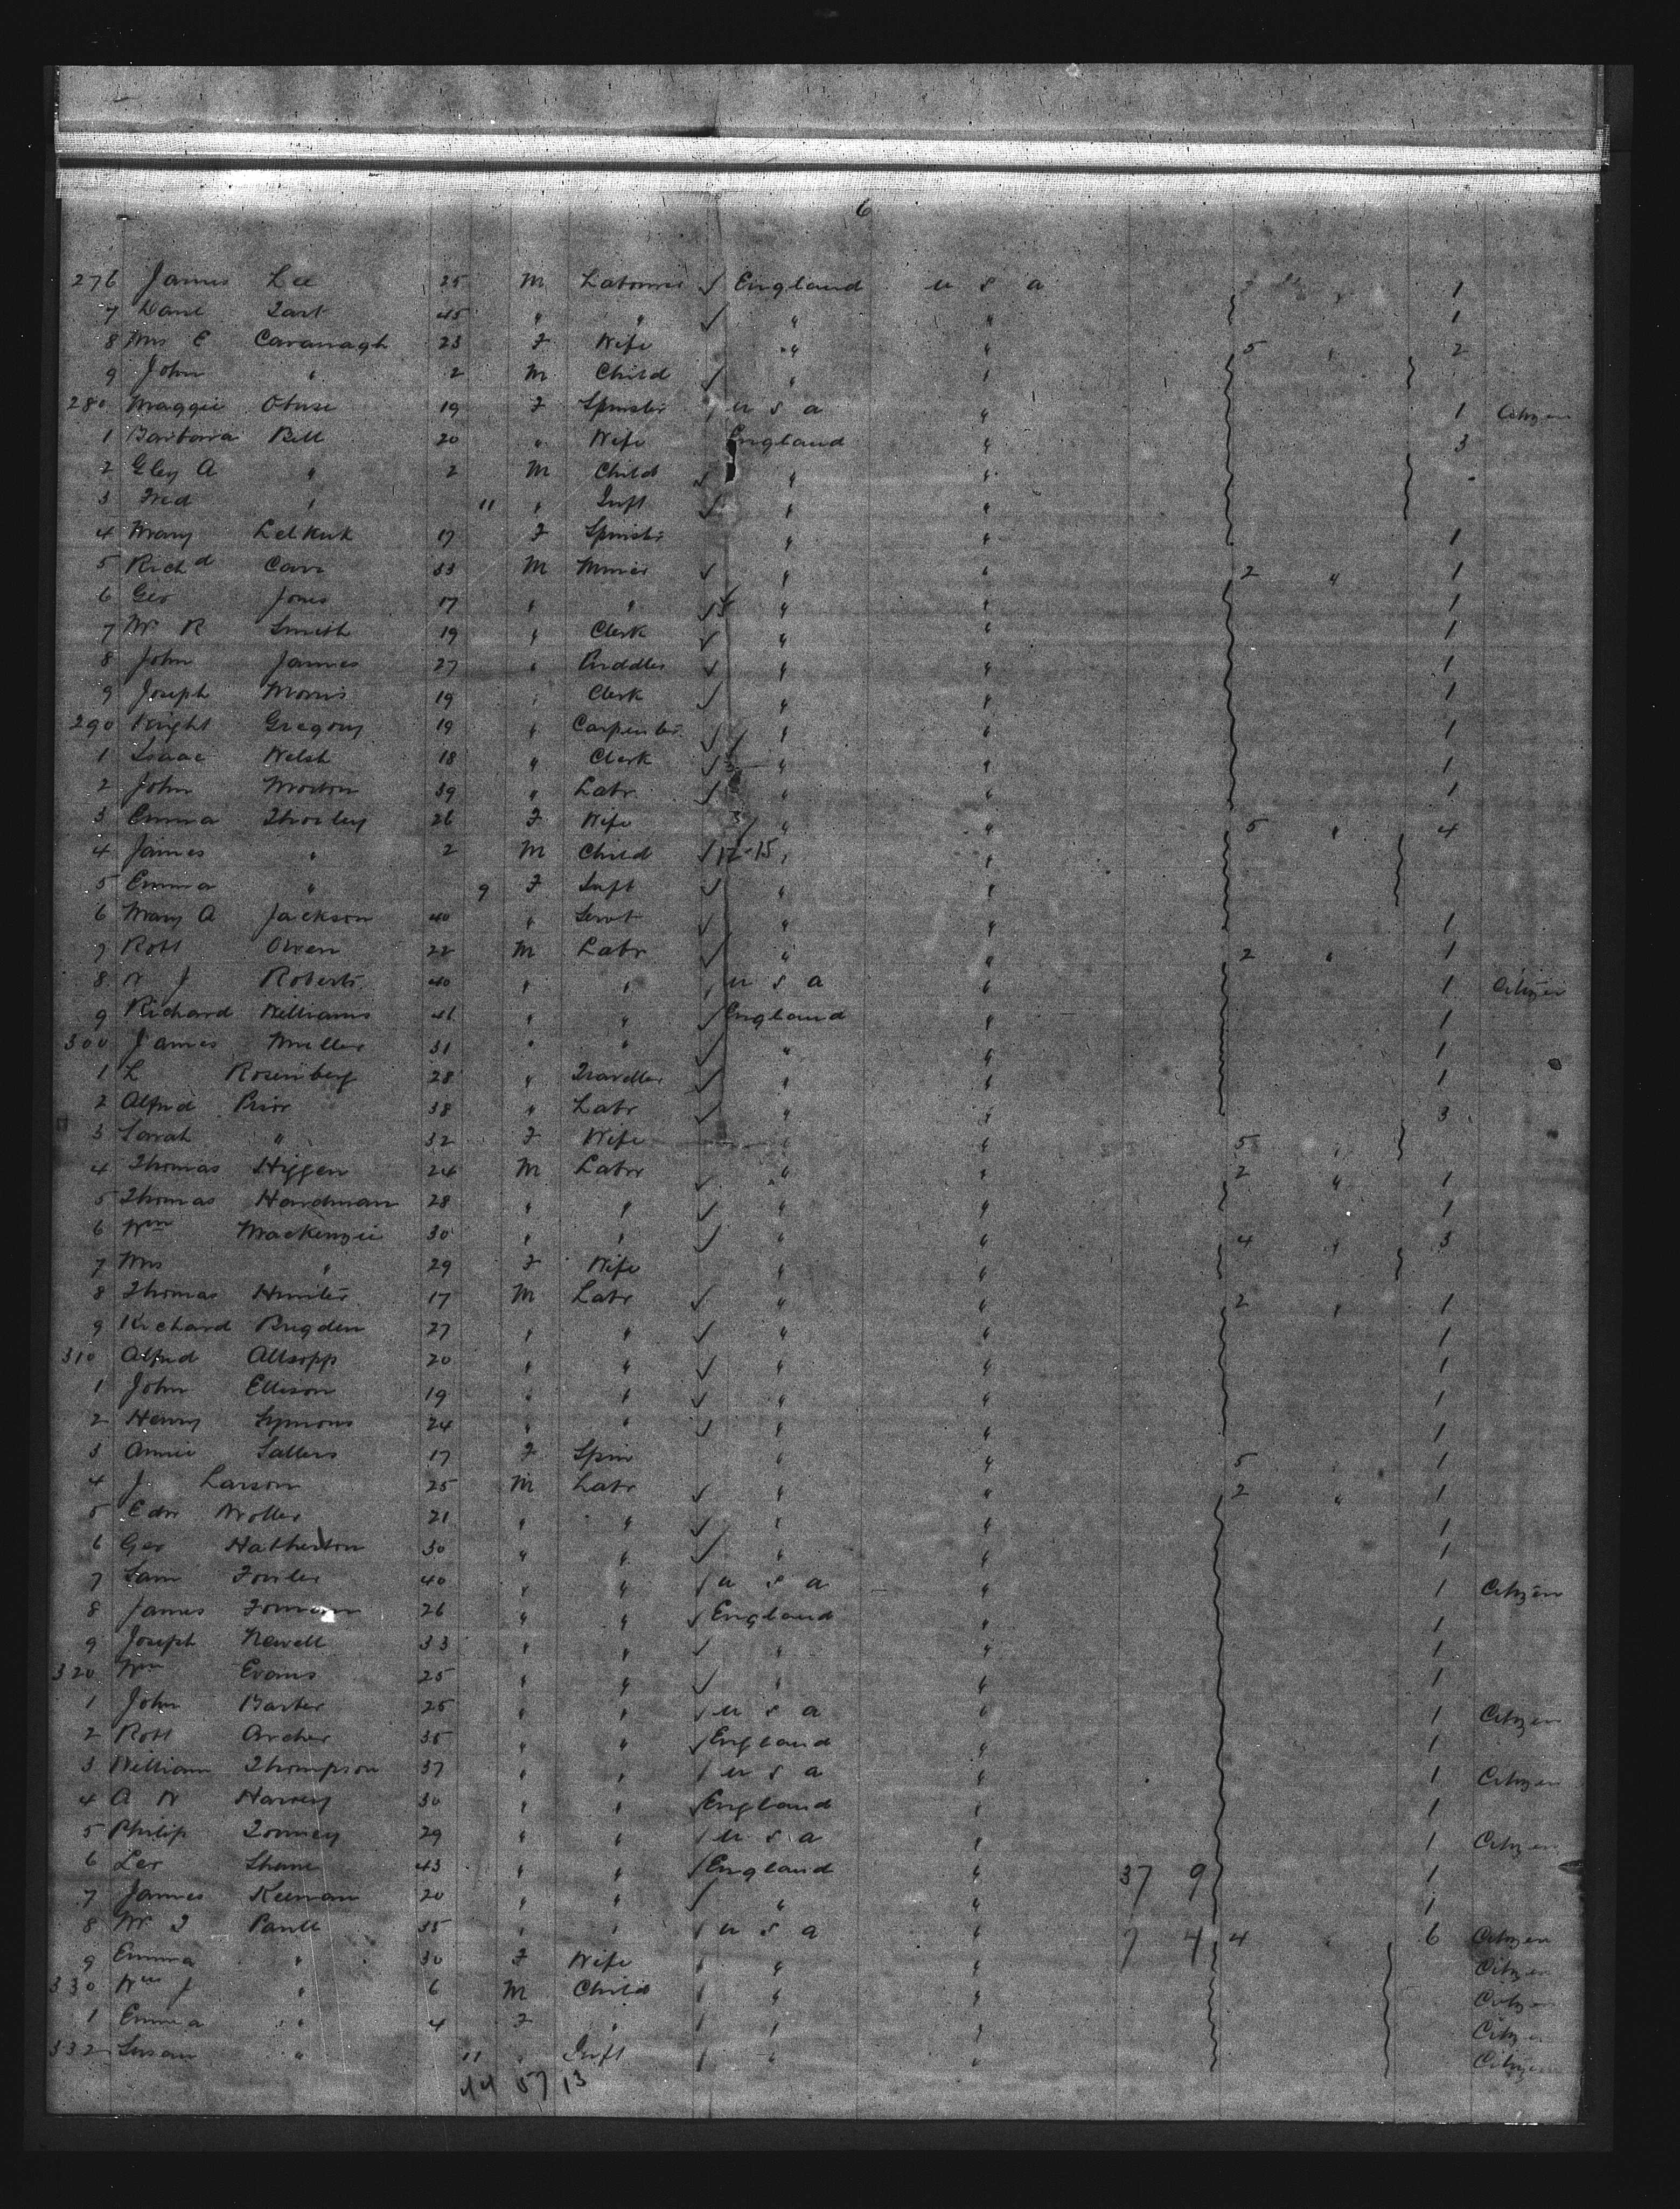 6
276 James Lee 25 M Labourer ✓ England U S A 1
7 Danl Tart 45 " " ✓ " " 1
8 Mrs E Cavanagh 23 F Wife " " 5 " 2
9 John " 2 M Child ✓ " "
280 Maggie 19 F Spinster U S A " 1 Citizen
1 Barbara Bell 20 " Wife England " 3
2 A " 2 M Child ✓ " "
3 Fred " 11 " Inft ✓ " "
4 Mary 17 F Spinster " " 1
5 Richd 33 M Miner ✓ " " 2 " 1
6 Geo Jones 17 " " ✓ " " 1
7 W. R Smith 19 " Clerk ✓ " " 1
8 John James 27 " Puddler ✓ " " 1
9 Joseph Morris 19 " Clerk ✓ " " 1
290 Gregory 19 " Carpenter ✓ " " 1
1 Isaac Welsh 18 " Clerk ✓ " " 1
2 John Morton 39 " Labr ✓ " " 1
3 Emma Thorley 26 F Wife " " 5 " 4
4 James " 2 M Child ✓ 12-15 " "
5 Emma " 9 F Inft ✓ " "
6 Mary A Jackson 40 " Servt ✓ " " 1
7 Robt Owen 22 M Labr ✓ " " 2 " 1
8 W J Roberts 40 " " U S A " 1 Citizen
9 Richard Williams 41 " " ✓ England " 1
300 James Muller 31 " " ✓ " " 1
1 L Rosenberg 28 " Traveller ✓ " " 1
2 Alfred Prior 38 " Labr ✓ " " 3
3 Sarah " 32 F Wife " " 5 "
4 Thomas Higgen 24 M Labr ✓ " " 2 " 1
5 Thomas Hardman 28 " " ✓ " " 1
6 Wm Mackenzie 30 " " ✓ " " 4 " 3
7 Mrs " 29 F Wife " "
8 Thomas Hunter 17 M Labr ✓ " " 2 " 1
9 Richard Brigden 27 " " ✓ " " 1
310 Alfred Allsopp 20 " " ✓ " " 1
1 John Ellison 19 " " ✓ " " 1
2 Henry Symons 24 " " ✓ " " 1
3 Annie Sallers 17 F Spin " " 5 1
4 J Larson 25 M Labr ✓ " " 2 " 1
5 Edw 21 " " ✓ " " 1
6 Geo Hatherton 30 " " ✓ " " 1
7 Sam Fowler 40 " " U S A " 1 Citizen
8 James 26 " " ✓ England " 1
9 Joseph Newell 33 " " ✓ " " 1
320 Wm Evans 25 " " ✓ " " 1
1 John Barter 25 " " U S A " 1 Citizen
2 Robt Archer 35 " " ✓ England " 1
3 William Thompson 37 " " U S A " 1 Citizen
4 A W Harvey 30 " " ✓ England " 1
5 Philip 29 " " U S A " 1 Citizen
6 Leo 43 " " ✓ England " 37 9 1
7 James Keenan 20 " " ✓ " " 1
8 Wm T Paull 35 " " U S A " 7 4 4 " 6 Citizen
9 Emma " 30 F Wife " " Citizen
330 Wm J " 6 M Child " " Citizen
1 Emma " 4 F " " " Citizen
332 Susan " 11 " Inft " " Citizen
44 57 13